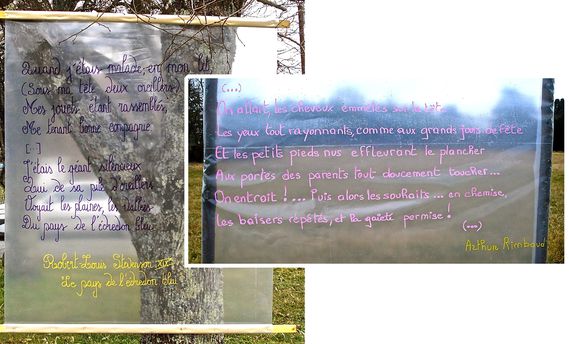 Quand j'étais malade, en mon lit
(Sous ma tête deux oreillers)
Mes jouets, étant rassemblés,
Me tenant bonne compagnie
[...]
J'étais le géant silencieux
Qui de sa pile d'oreillers
Voyait les plaines, les vallées
Du pays de l'édredon bleu
Robert Louis Stevenson
Le pays de l'édredon bleu
(...)
On allait, les cheveux emmêlés sur la tête
Les yeux tout rayonnants, comme aux grands jours de fête
Et les petits pieds nus effleurant le plancher
Aux portes des parents tout doucement toucher...
On entrait !... Puis alors les souhaits... en chemise,
Les baisers répétés, et la gaieté permise !
(...)
Arthur Rimbaud